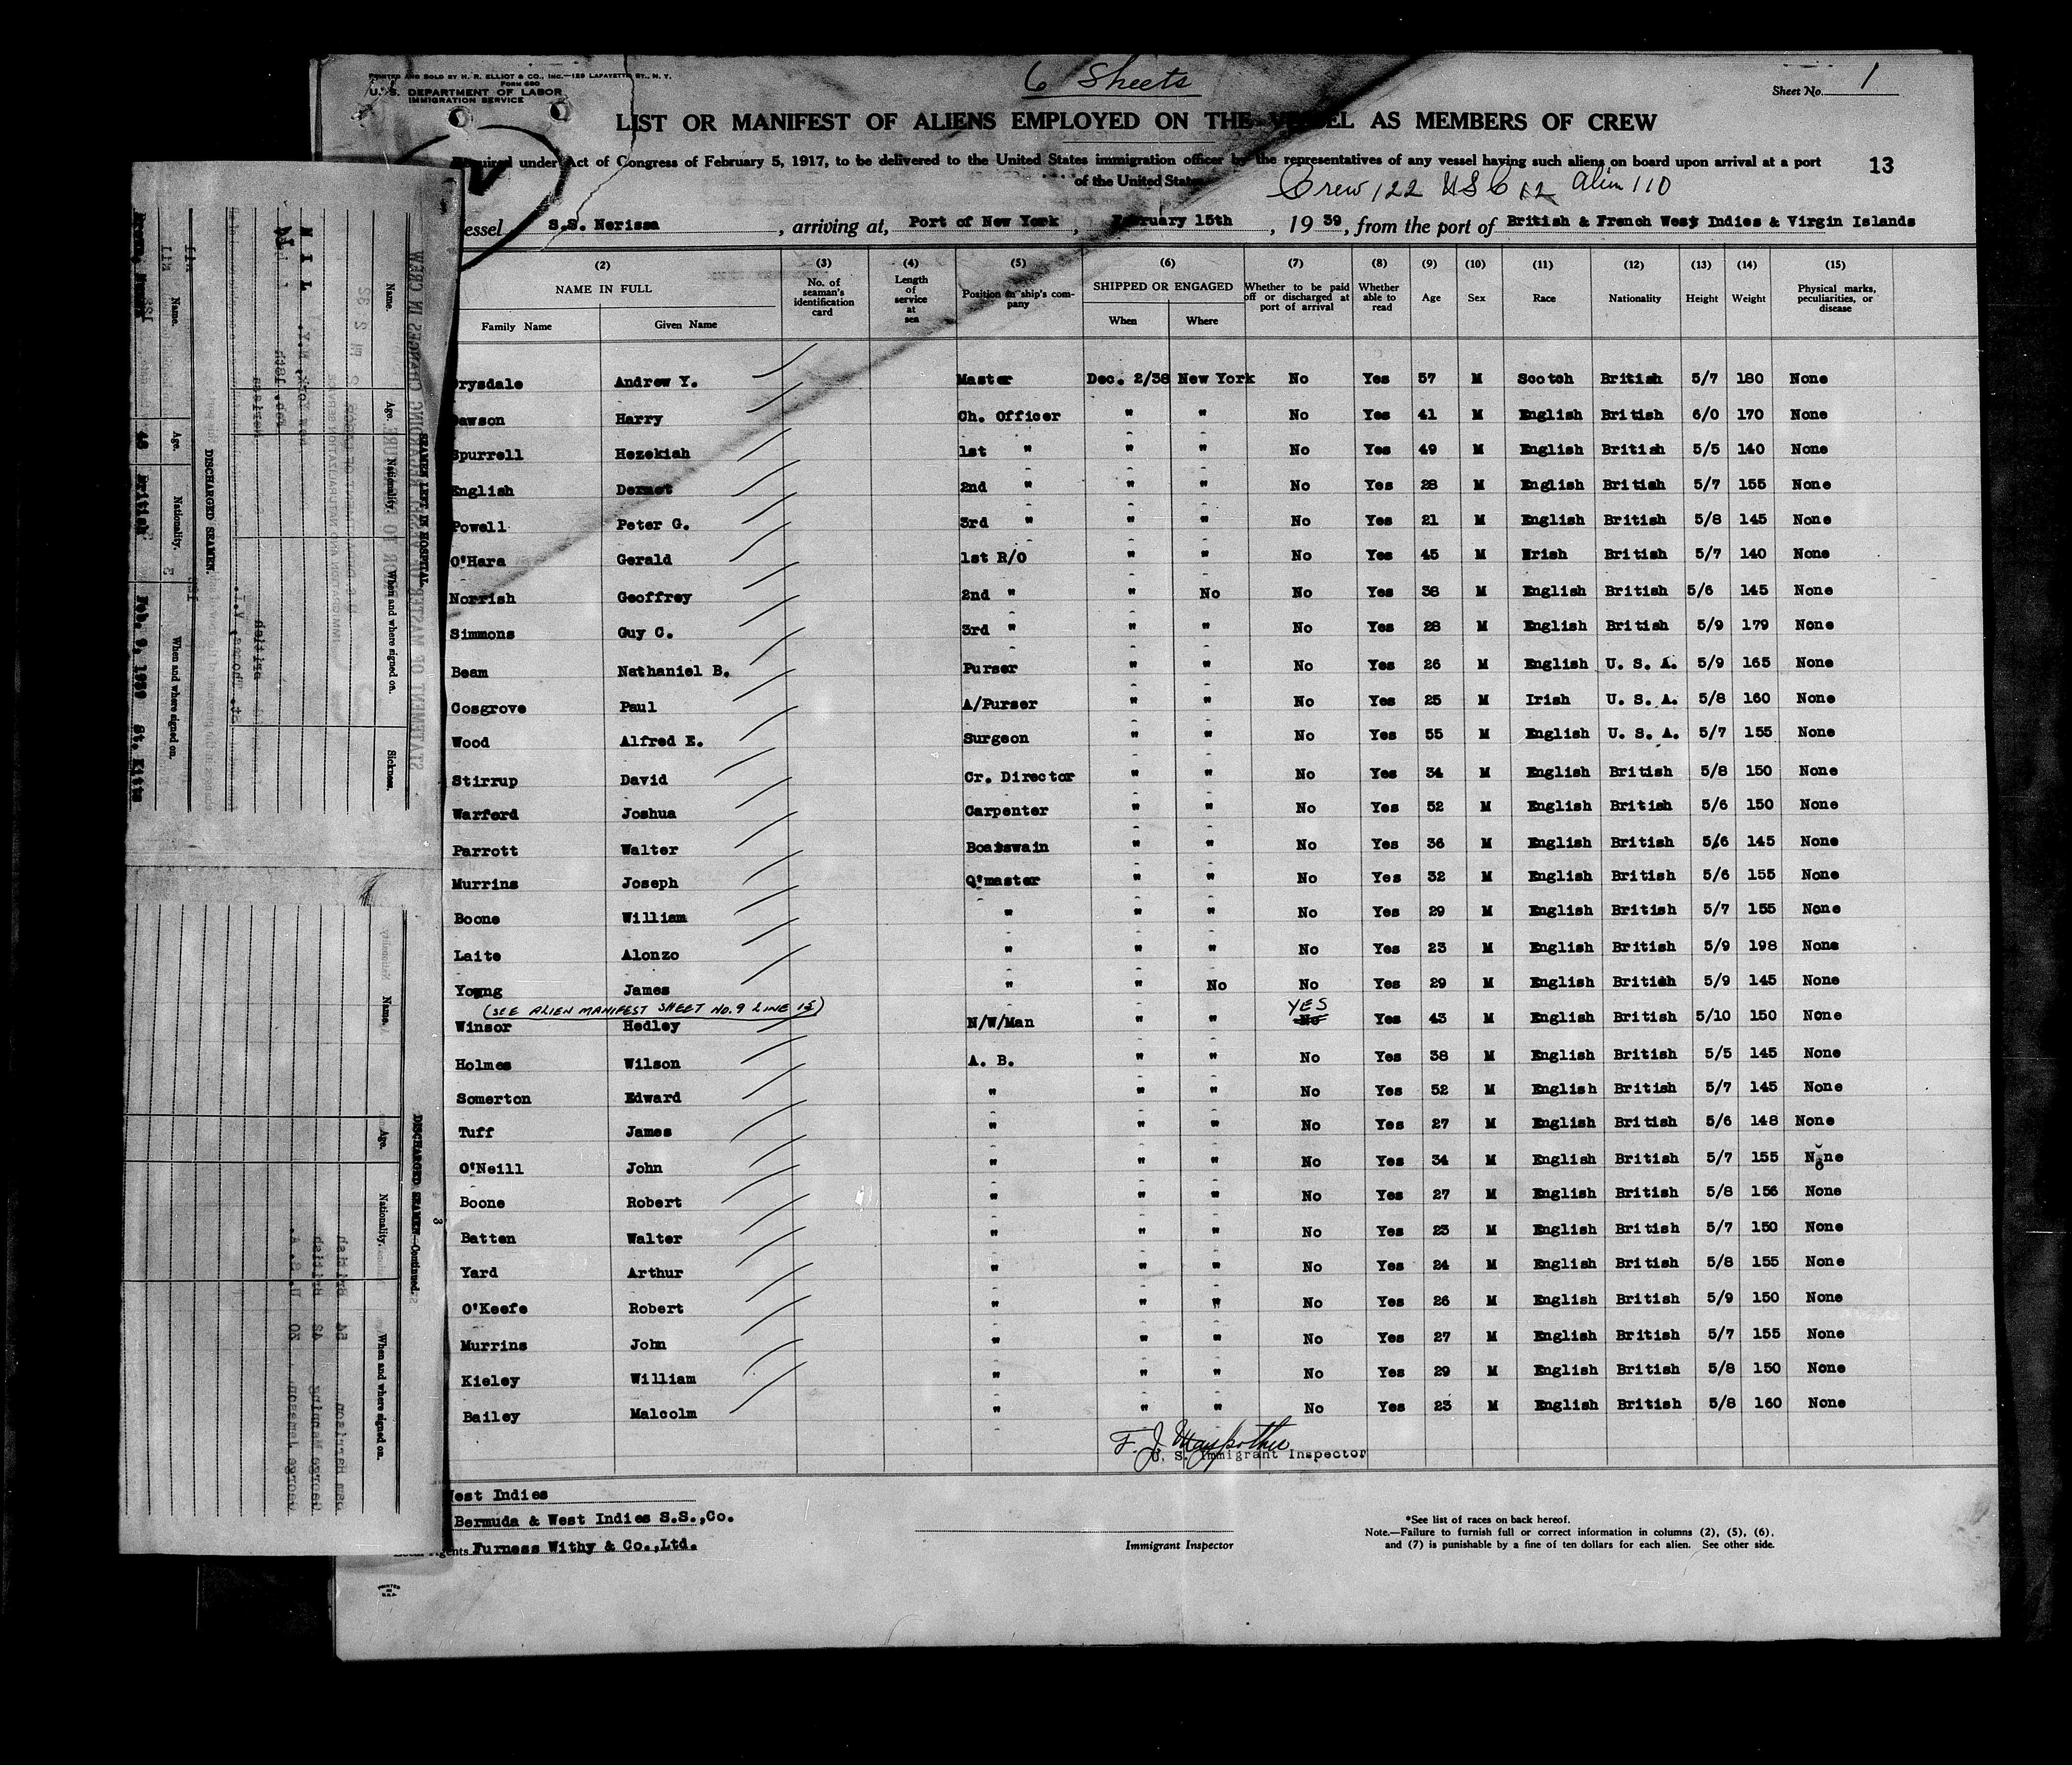 PRINTED AND SOLD BY H. R. ELLIOT & CO., INC.—129 LAFAYETTE ST., N. Y.
Form 680
U. S. DEPARTMENT OF LABOR
IMMIGRATION SERVICE
6 Sheets
Sheet No. 1
LIST OR MANIFEST OF ALIENS EMPLOYED ON THE VESSEL AS MEMBERS OF CREW
Required under Act of Congress of February 5, 1917, to be delivered to the United States immigration officer by the representatives of any vessel having such aliens on board upon arrival at a port
of the United States
13
Crew 122 USC 12 Alien 110
essel S.S. Nerissa, arriving at, Port of New York, February 15th, 19 39, from the port of British & French West Indies & Virgin Islands
(2) (3) (4) (5) (6) (7) (8) (9) (10) (11) (12) (13) (14) (15)
NAME IN FULL No. of seaman's identification card Length of service at sea Position in ship's company SHIPPED OR ENGAGED Whether to be paid off or discharged at port of arrival Whether able to read Age Sex Race Nationality Height Weight Physical marks, peculiarities, or disease
Family Name Given Name When Where
rysdale Andrew Y. Master Dec. 2/38 New York No Yes 57 M Scotch British 5/7 180 None
awson Harry Ch. Officer " " No Yes 41 M English British 6/0 170 None
Spurrell Hezekiah 1st " " " No Yes 49 M English British 5/5 140 None
English Dermot 2nd " " " No Yes 28 M English British 5/7 155 None
Powell Peter G. 3rd " " " No Yes 21 M English British 5/8 145 None
O'Hara Gerald 1st R/O " " No Yes 45 M Irish British 5/7 140 None
Norrish Geoffrey 2nd " " No No Yes 38 M English British 5/6 145 None
Simmons Guy C. 3rd " " " No Yes 28 M English British 5/9 179 None
Beam Nathaniel B. Purser " " No Yes 26 M English U. S. A. 5/9 165 None
Cosgrove Paul A/Purser " " No Yes 25 M Irish U. S. A. 5/8 160 None
Wood Alfred E. Surgeon " " No Yes 55 M English U. S. A. 5/7 155 None
Stirrup David Cr. Director " " No Yes 34 M English British 5/8 150 None
Warford Joshua Carpenter " " No Yes 52 M English British 5/6 150 None
Parrott Walter Boatswain " " No Yes 36 M English British 5/6 145 None
Murrins Joseph Q'master " " No Yes 32 M English British 5/6 155 None
Boone William " " " No Yes 29 M English British 5/7 155 None
Laite Alonzo " " " No Yes 23 M English British 5/9 198 None
Young James " " No No Yes 29 M English British 5/9 145 None
(SEE ALIEN MANIFEST SHEET NO. 9 LINE 15) YES
Winsor Hedley N/W/Man " " No Yes 43 M English British 5/10 150 None
Holmes Wilson A. B. " " No Yes 38 M English British 5/5 145 None
Somerton Edward " " " No Yes 52 M English British 5/7 145 None
Tuff James " " " No Yes 27 M English British 5/6 148 None
O'Neill John " " " No Yes 34 M English British 5/7 155 None
Boone Robert " " " No Yes 27 M English British 5/8 156 None
Batten Walter " " " No Yes 23 M English British 5/7 150 None
Yard Arthur " " " No Yes 24 M English British 5/8 155 None
O'Keefe Robert " " " No Yes 26 M English British 5/9 150 None
Murrins John " " " No Yes 27 M English British 5/7 155 None
Kieley William " " " No Yes 29 M English British 5/8 150 None
Bailey Malcolm " " " No Yes 23 M English British 5/8 160 None
F. J.
U. S. Immigrant Inspector
West Indies
Bermuda & West Indies S.S.,Co.
Agents Furness Withy & Co.,Ltd.
Immigrant Inspector
*See list of races on back hereof.
Note.—Failure to furnish full or correct information in columns (2), (5), (6),
and (7) is punishable by a fine of ten dollars for each alien. See other side.
PRINTED IN U.S.A.
SEAMEN LEFT IN HOSPITAL.
Name. Age. Nationality. When and where signed on. Sickness.
NIL
DISCHARGED SEAMEN.
Name. Age. Nationality. When and where signed on.
British Feb. 9, 1939 St. Kitts
DISCHARGED SEAMEN—Continued.
Name. Age. Nationality. When and where signed on.
3